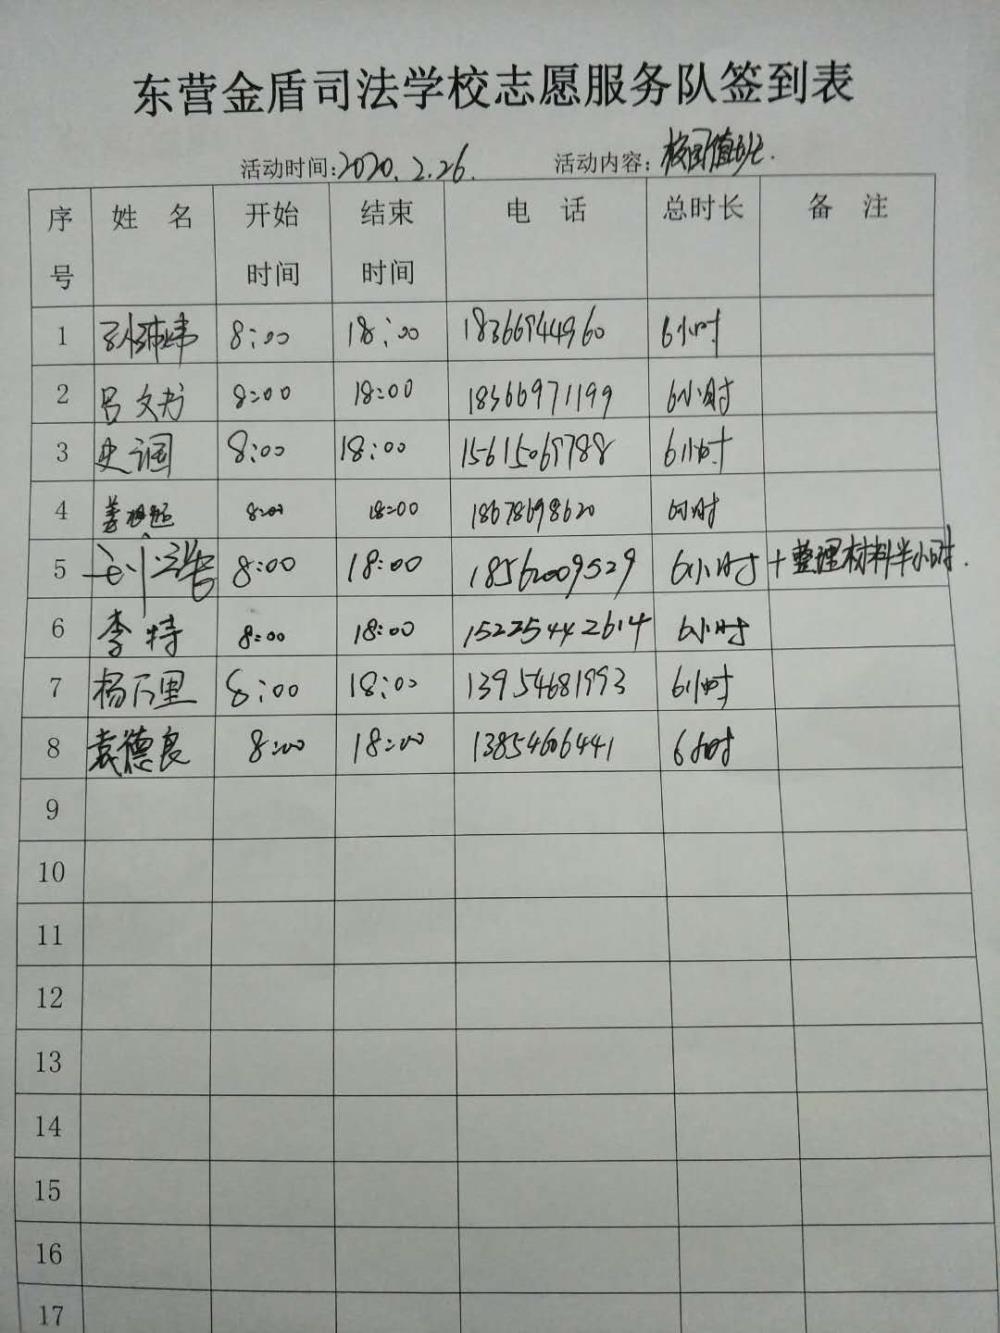 东营金盾司法学校志愿服务队签到表
活动时间:2020.2.26. 活动内容:校园值班.
序号 姓 名 开始时间 结束时间 电 话 总时长 备 注
1 8:00 18:00 18366944960 6小时
2 吕文 8:00 18:00 18366971199 6小时
3 史润 8:00 18:00 15615069788 6小时
4 姜 8:00 18:00 18678698620 6小时
5 刘 8:00 18:00 18562009529 6小时 +整理材料半小时.
6 李特 8:00 18:00 15225442614 6小时
7 杨万里 8:00 18:00 13954681993 6小时
8 袁德良 8:00 18:00 13854606441 6小时
9
10
11
12
13
14
15
16
17